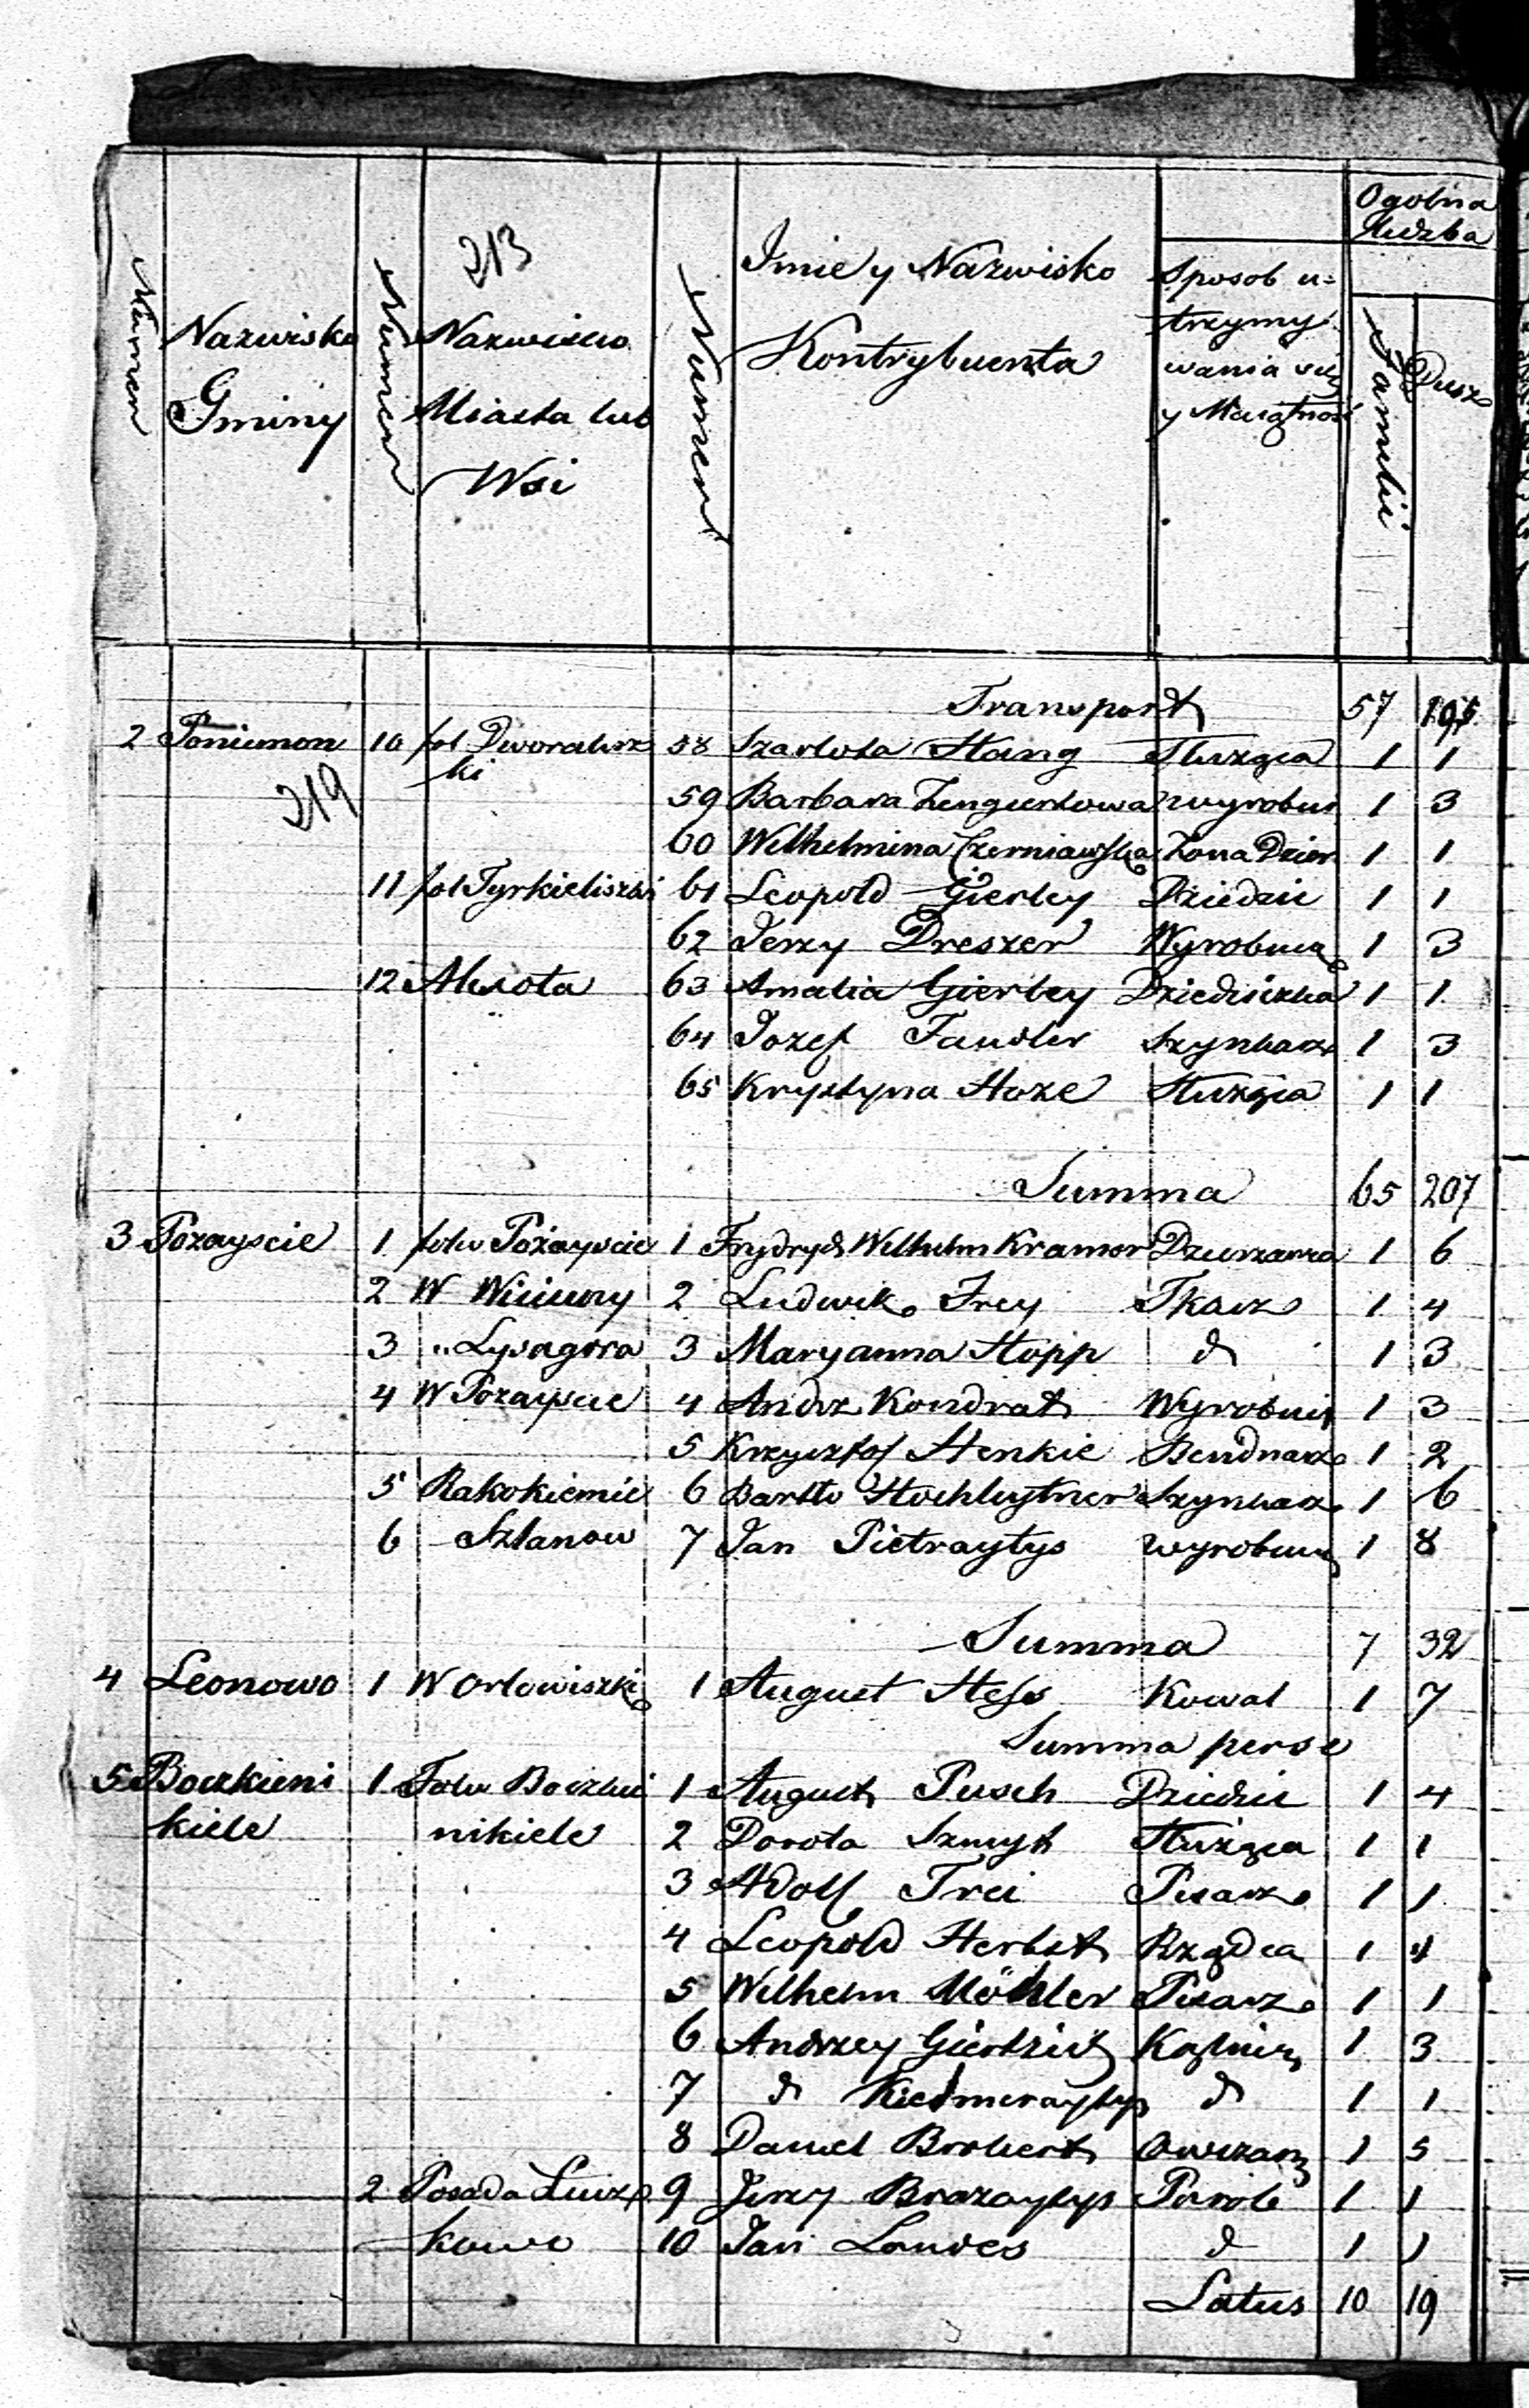 Ogólna
liczba
213
Numer
Nazwisko
Gminy
Numer
Nazwisko
Miasta lub
Wsi
Numer
Imie y Nazwisko
Kontrybuenta
Sposob u=
trzymy
wania się
y Maiątność
Familii
Dusz
Transport 57 195
2 Poniemon 10 fol Dworalisz 58 Szarlota Hang Służąca 1 1
ki
219
59 Barbara Zengiertowa wyrobni 1 3
60 Wilhelmina Czerniawska Zona Dzier 1 1
11 fol Tyrkieliszki 61 Leopold Gierley Dziedzic 1 1
62 Jerzy Dreszer Wyrobnik 1 3
12 Alexota 63 Amalia Gierley Dziedziczka 1 1
64 Jozef Faudler Szynkarz 1 3
65 Krystyna Hoze Służąca 1 1
Summa 65 207
3 Pozayscie 1 folw Pożayscie 1 Frydrych Wilhelm Kramer Dzierzawca 1 6
2 W 2 Ludwik Frey Tkacz 1 4
3 " Lysagora 3 Maryanna Hopp d 1 3
4 W Pozayscie 4 Andrz Kondrat Wyrobnik 1 3
5 Krzysztof Henkie Bendnarz 1 2
5 Rakokiemie 6 Bartło Hochleytner Szynkarz 1 6
6 Szlanow 7 Jan Pietraytys wyrobnik 1 8
Summa 7 32
4 Leonowo 1 W Orlowiszki 1 August Hess Kowal 1 7
Summa per se
5 Boczkieni 1 Folw Boczkie 1 August Pusch Dziedzic 1 4
kiele nikiele 2 Dorota Szmyt Służąca 1 1
3 Adolf Frei Pisarz 1 1
4 Leopold Herbst Rządca 1 4
5 Wilhelm Möhler Pisarz 1 1
6 Andrzey 1 3
7 d d 1 1
8 Daniel Brohert Owczarz 1 5
2 Posada Luizy 9 Jerzy Brazaytys Parob 1 1
kowo 10 Jan Landes d 1 1
Latus 10 19